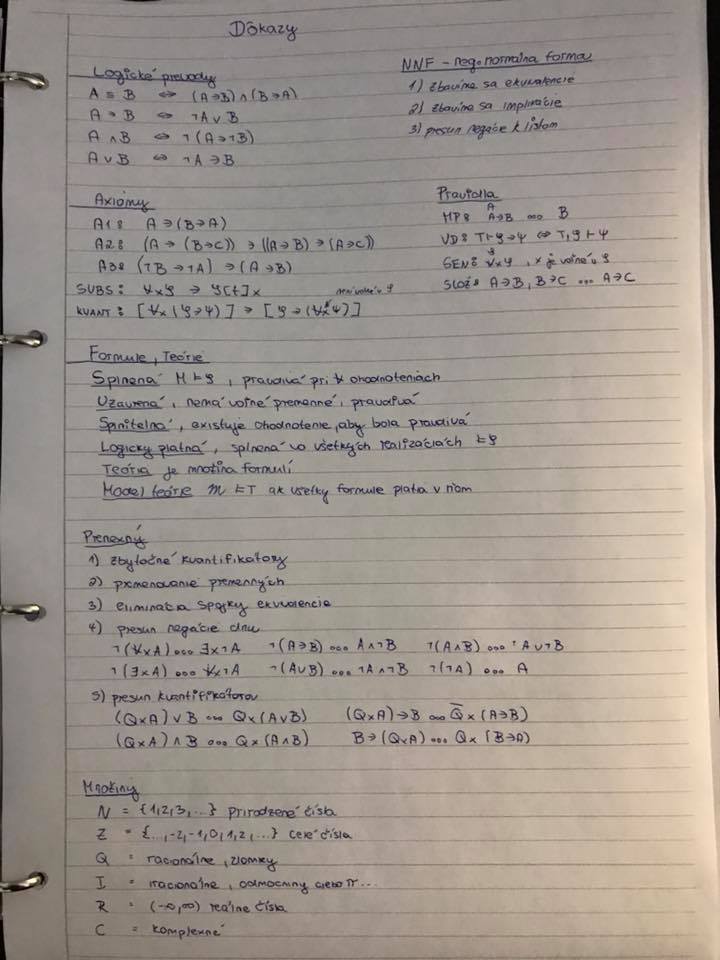 Dôkazy
Logické prevody
A ≡ B ⇔ (A→B)∧(B→A)
A → B ⇔ ¬A∨B
A ∧ B ⇔ ¬(A→¬B)
A∨B ⇔ ¬A→B
NNF - neg. normálna forma
1) zbavíme sa ekvivalencie
2) zbavíme sa implikácie
3) presun negácie k listom
Axiómy
A1: A→(B→A)
A2: (A→(B→C))→((A→B)→(A→C))
A3: (¬B→¬A)→(A→B)
SUBS: ∀xφ → φ[t]x
není voľné v φ
KVANT: [∀x(φ→ψ)]→[φ→(∀xψ)]
Pravidlá
A
MP: A→B ... B
VD: T⊢φ→ψ ⇔ T,φ⊢ψ
φ
GEN: ∀xφ, x je voľné v φ
SLOŽ: A→B, B→C ... A→C
Formule, Teórie
Splnená M⊨φ, pravdivá pri ∀ ohodnoteniach
Uzavrená, nemá voľné premenné, pravdivá
Splniteľná, existuje ohodnotenie, aby bola pravdivá
Logicky platná, splnená vo všetkých realizáciách ⊨φ
Teória je množina formulí
Model teórie M⊨T ak všetky formule platia v ňom
Prenexný
1) zbytočné kvantifikátory
2) premenovanie premenných
3) eliminácia spojky ekvivalencie
4) presun negácie dnu
¬(∀xA)...∃x¬A ¬(A→B)...A∧¬B ¬(A∧B)...¬A∨¬B
¬(∃xA)...∀x¬A ¬(A∨B)...¬A∧¬B ¬(¬A)...A
5) presun kvantifikátorov
(QxA)∨B ... Qx(A∨B) (QxA)→B ... Q̄x(A→B)
(QxA)∧B ... Qx(A∧B) B→(QxA)...Qx(B→A)
Množiny
N = {1,2,3,...} prirodzené čísla
Z = {...,-2,-1,0,1,2,...} celé čísla
Q = racionálne, zlomky
I = iracionálne, odmocniny alebo π...
R = (-∞,∞) reálne čísla
C = komplexné